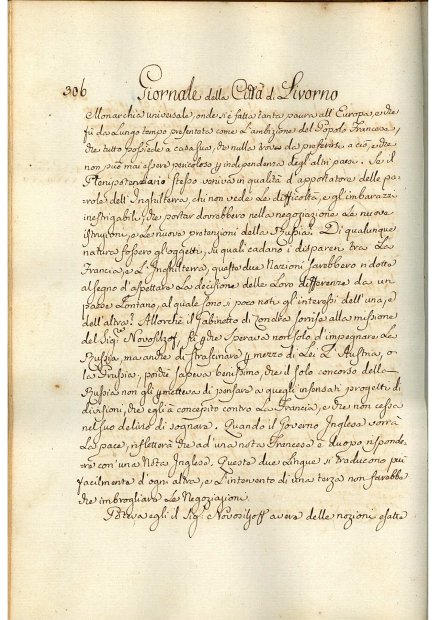 306 Giornale della Città di Livorno
Monarchia universale, onde si è fatta tanta paura all'Europa, e che
fù da Lungo tempo presentata come L'ambizione del Popolo Francese,
che tutto possiede a casa sua, che nulla trova da preferire a ciò, e che
non può mai essere pericoloso p. indipendenza degl'altri paesi. Se il
Plenipotenziario stesso veniva in qualità d'apportatore delle pa-
role dell'Inghilterra, chi non vede Le difficoltà, e gl'imbarazzi
inestrigabili, che portar dovrebbero nella negoziazione Le nuove
istruzioni, e Le nuove pretenzioni della Russia? Di qualunque
natura fossero gl'oggetti, su quali cadano i dispareri tra La
Francia, e L'Inghilterra, queste due Nazioni sarebbero ridotte
al segno d'aspettare La decisione delle Loro differenze da un
paese Lontano, al quale sono sì poco noti gl'interessi dell'una, e
dell'altra? Allorchè il Gabinetto di Londra sorrise alla missione
del Sigr. Novosilzoff, fù che sperava non solo d'impegnare La
Russia, ma anche di strascinare p. mezzo di Lei L'Austria, o
la Prussia, poichè sapeva benissimo, che il solo concorso della
Russia non gli permetteva di pensare a quegli insensati progetti di
divisioni, che egli à concepito contro La Francia, e che non cessa
nel suo delirio di sognare. Quando il Governo Inglese vorrà
La pace, rifletterà che ad una nota Francese è duopo risponde-
re con una Nota Inglese. Queste due Lingue si traducono più
facilmente d'ogni altra, e L'intervento di una terza non farebbe
che imbrogliare Le Negoziazioni.
Poteva egli il Sigr. Novosilzoff avere delle nozioni esatte